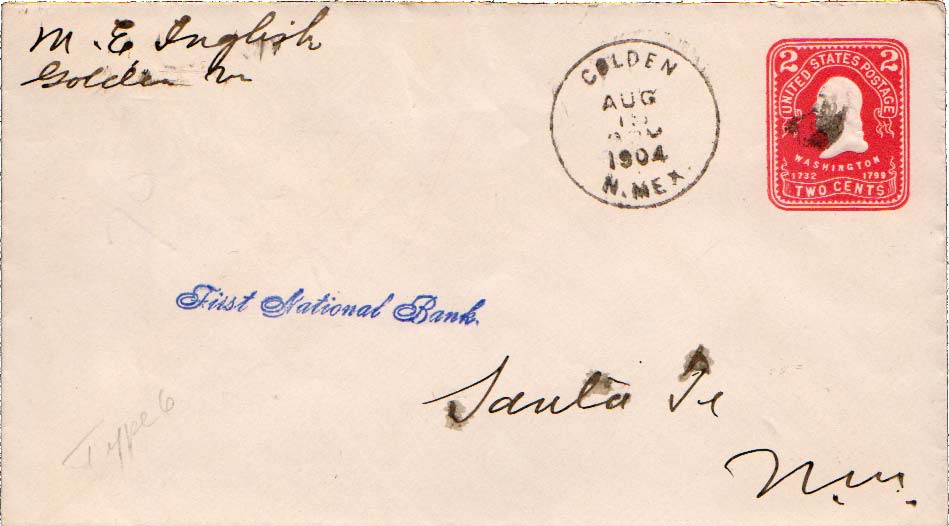 M. E. English
Golden Nm
GOLDEN
AUG
1904
N. MEX.
2 2
UNITED STATES POSTAGE
WASHINGTON
1732 1799
TWO CENTS
First National Bank.
Santa Fe
N.m.
Type 6